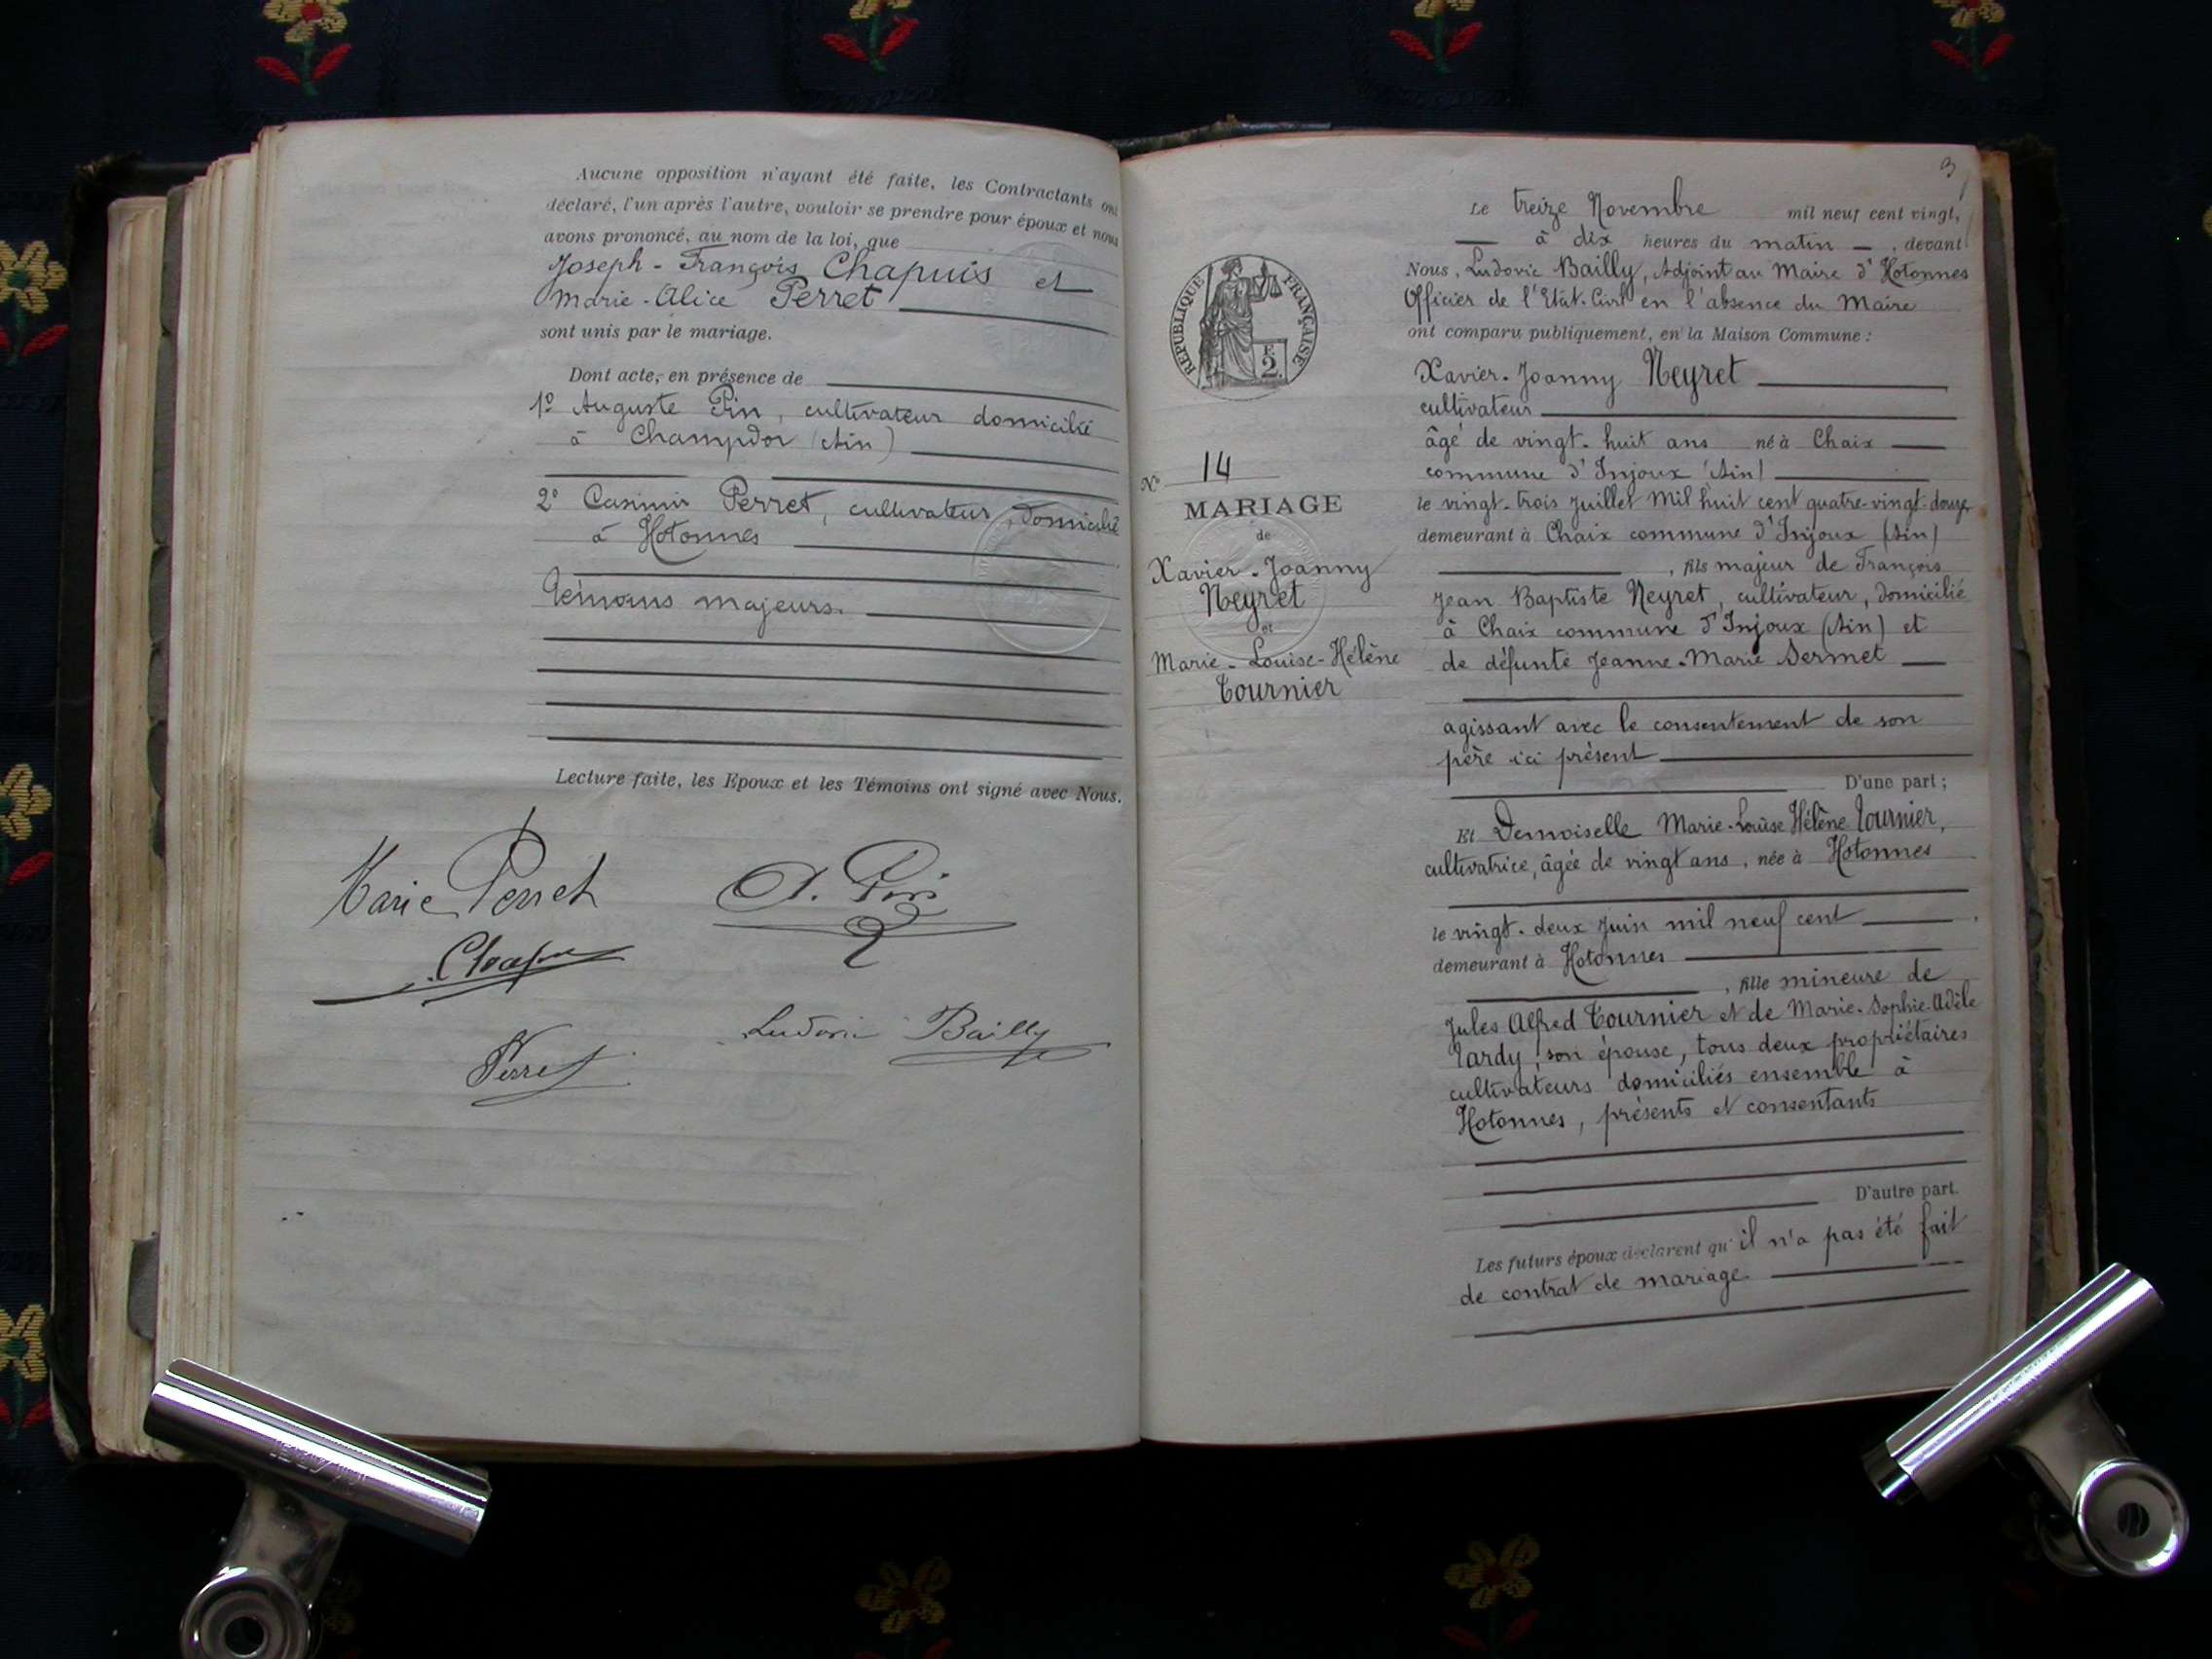 Aucune opposition n'ayant été faite, les Contractants ont
déclaré, l'un après l'autre, vouloir se prendre pour époux et nous
avons prononcé, au nom de la loi, que
Joseph-François Chapuis et
Marie-Alice Perret
sont unis par le mariage.
Dont acte, en présence de
1º Auguste Pin, cultivateur domicilié
à Champdor (Ain)
2º Casimir Perret, cultivateur, domicilié
à Hotonnes
Témoins majeurs.
Lecture faite, les Epoux et les Témoins ont signé avec Nous.
Marie Perret
A. Pin
Chapuis
Ludovic Bailly
Perret
3
Le treize Novembre mil neuf cent vingt,
à dix heures du matin, devant
Nous, Ludovic Bailly, Adjoint au Maire d'Hotonnes
Officier de l'Etat-Civil en l'absence du Maire
ont comparu publiquement, en la Maison Commune :
Xavier-Joanny Neyret
cultivateur
âgé de vingt-huit ans né à Chaix
commune d'Injoux (Ain)
le vingt-trois Juillet Mil huit cent quatre-vingt-douze
demeurant à Chaix commune d'Injoux (Ain)
, fils majeur de François
Jean Baptiste Neyret, cultivateur, domicilié
à Chaix commune d'Injoux (Ain) et
de défunte Jeanne-Marie Sermet
agissant avec le consentement de son
père ici présent
D'une part ;
Et Demoiselle Marie-Louise Hélène Tournier,
cultivatrice, âgée de vingt ans, née à Hotonnes
le vingt-deux Juin mil neuf cent
demeurant à Hotonnes
, fille mineure de
Jules Alfred Tournier et de Marie-Sophie-Adèle
Tardy, son épouse, tous deux propriétaires
cultivateurs domiciliés ensemble à
Hotonnes, présents et consentants
D'autre part.
Les futurs époux déclarent qu'il n'a pas été fait
de contrat de mariage.
REPUBLIQUE FRANÇAISE
F.
2
Nº 14
MARIAGE
de
Xavier-Joanny
Neyret
et
Marie-Louise-Hélène
Tournier